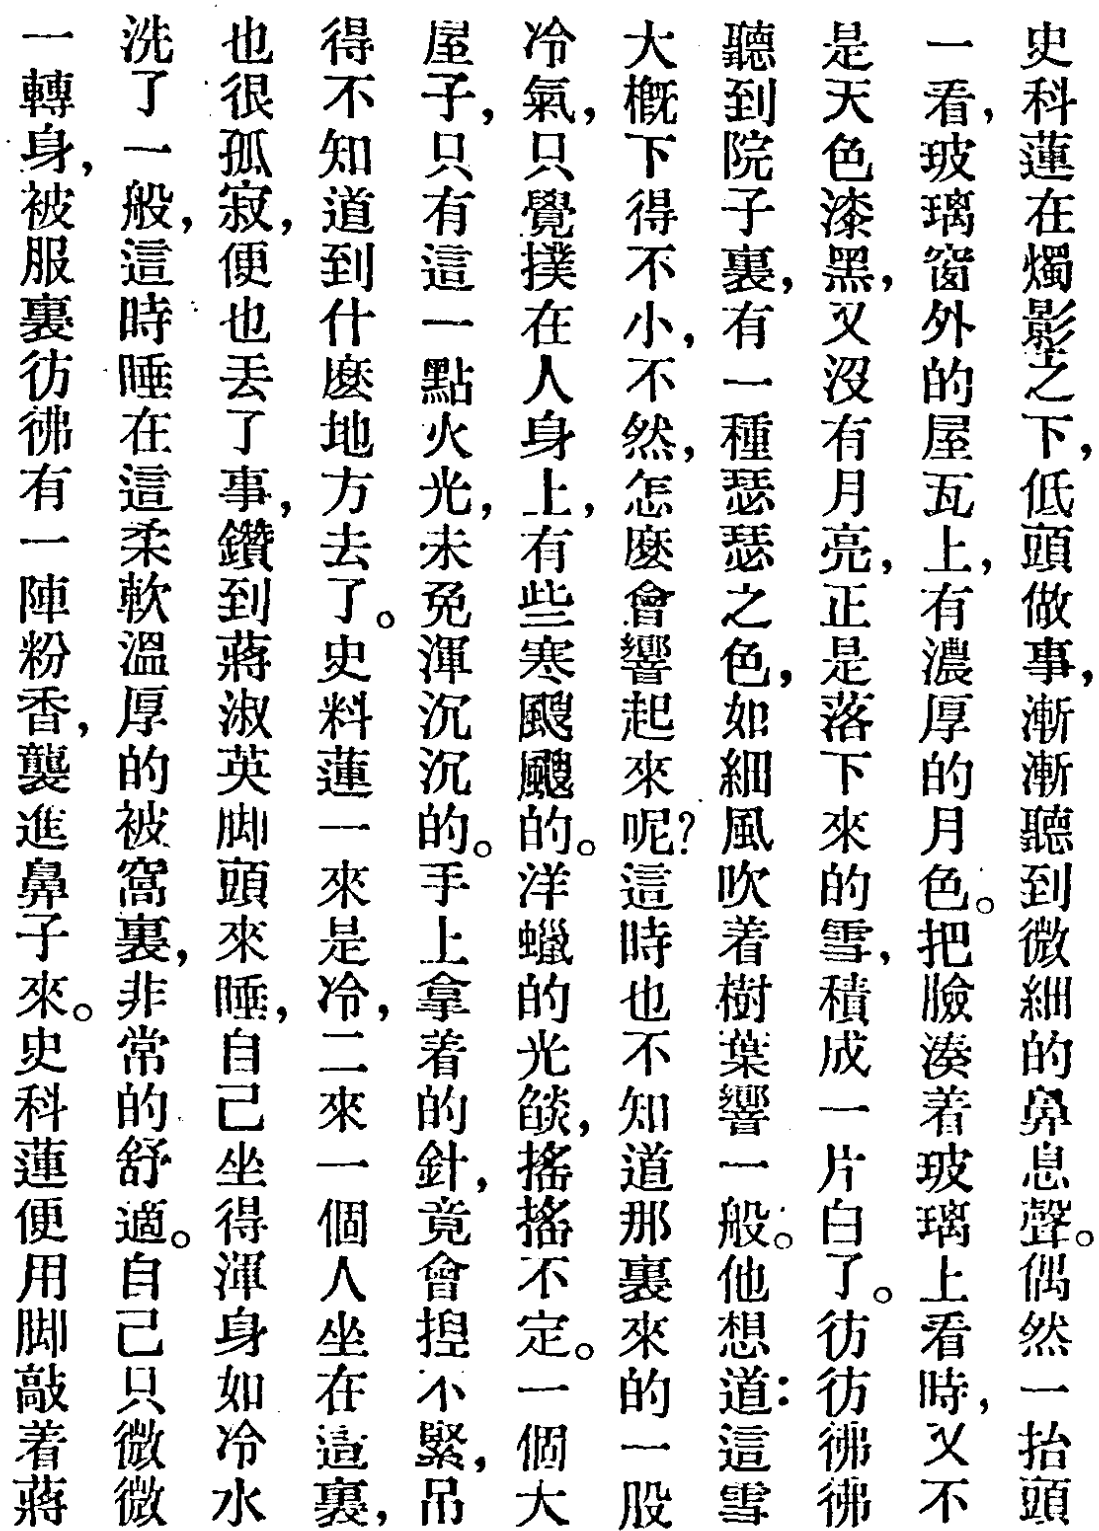 史科蓮在燭影之下，低頭做事，漸漸聽到微細的鼻息聲。偶然一抬頭
一看，玻璃窗外的屋瓦上，有濃厚的月色。把臉湊着玻璃上看時，又不
是天色漆黑，又沒有月亮，正是落下來的雪，積成一片白了。彷彷彿彿
聽到院子裏，有一種瑟瑟之色，如細風吹着樹葉響一般。他想道：這雪
大概下得不小，不然，怎麽會響起來呢？這時也不知道那裏來的一股
冷氣，只覺撲在人身上，有些寒颼颼的。洋蠟的光燄，搖搖不定。一個大
屋子，只有這一點火光，未免渾沉沉的。手上拿着的針，竟會揑不緊，吊
得不知道到什麽地方去了。史料蓮一來是冷，二來一個人坐在這裏，
也很孤寂，便也丟了事，鑽到蔣淑英脚頭來睡，自己坐得渾身如冷水
洗了一般，這時睡在這柔軟溫厚的被窩裏，非常的舒適。自己只微微
一轉身，被服裏彷彿有一陣粉香，襲進鼻子來。史科蓮便用脚敲着蔣